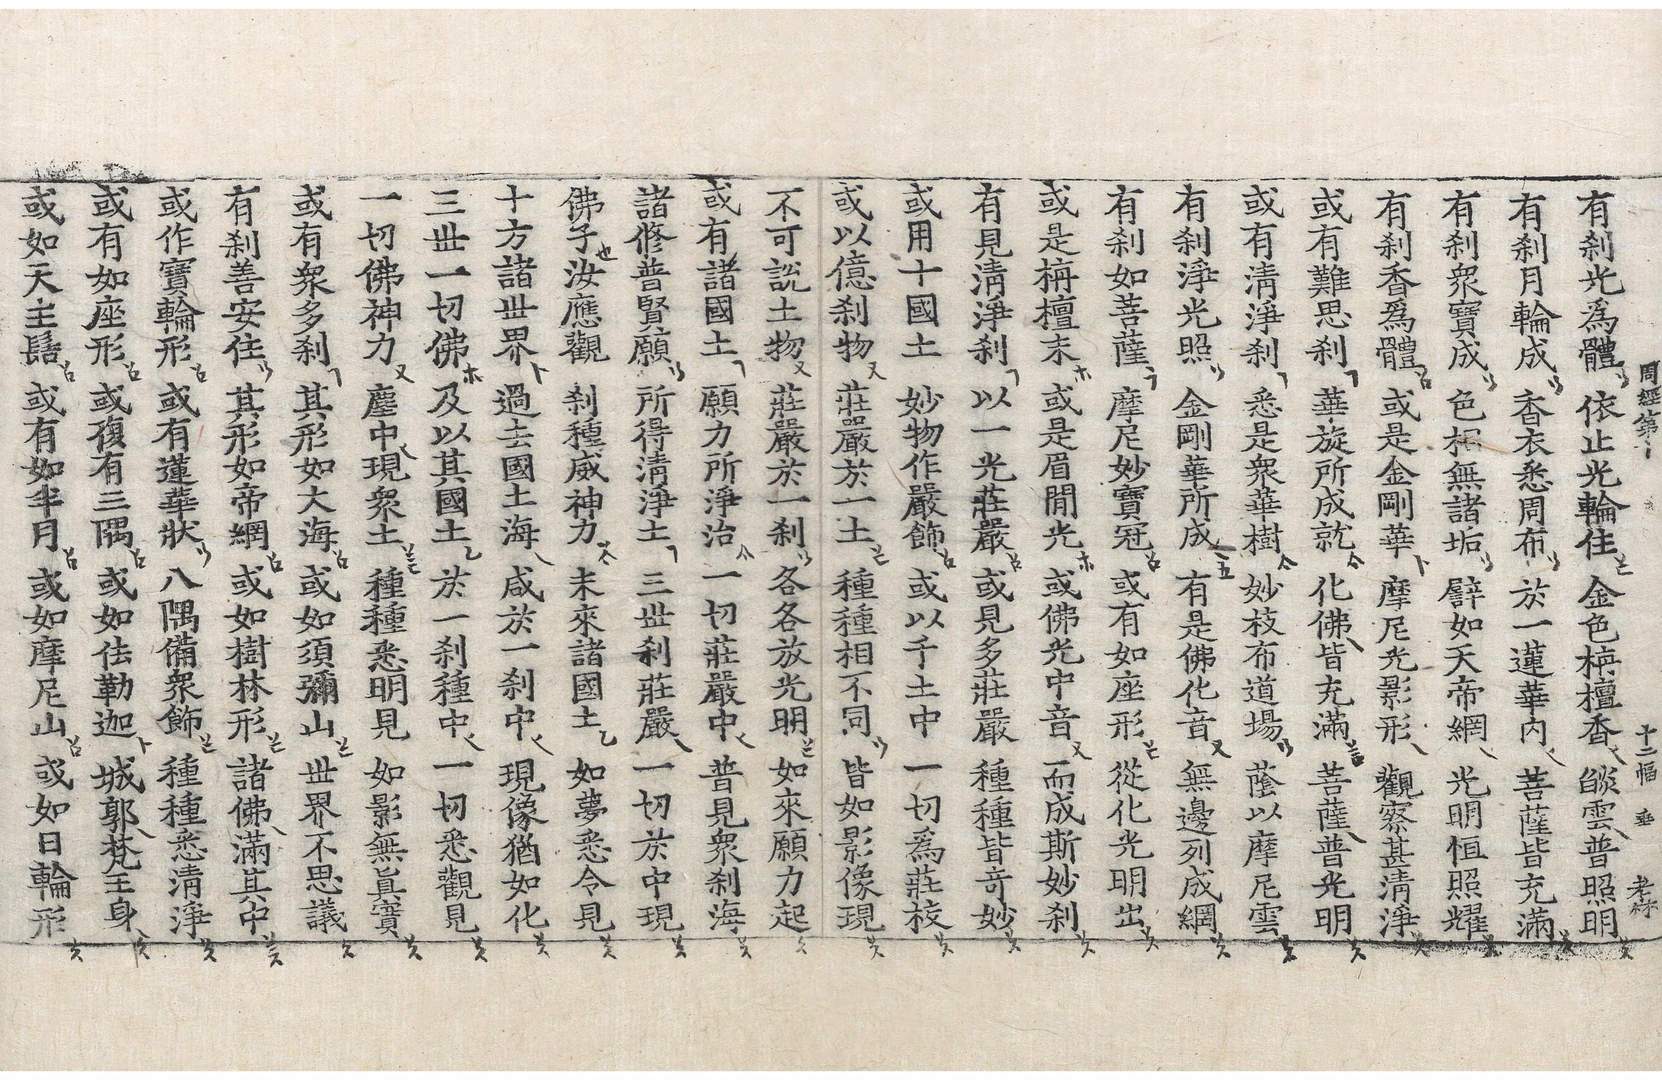 周經第十 十二幅 垂 老林
有刹光爲體 依止光輪住 金色栴檀香 燄雲普照明
有刹月輪成 香衣悉周布 於一蓮華內 菩薩皆充滿
有刹衆寶成 色相無諸垢 譬如天帝網 光明恒照耀
有刹香爲體 或是金剛華 摩尼光影形 觀察甚清淨
或有難思刹 華旋所成就 化佛皆充滿 菩薩普光明
或有清淨刹 悉是衆華樹 妙枝布道場 蔭以摩尼雲
有刹淨光照 金剛華所成 有是佛化音 無邊列成網
有刹如菩薩 摩尼妙寶冠 或有如座形 從化光明出
或是栴檀末 或是眉間光 或佛光中音 而成斯妙刹
有見清淨刹 以一光莊嚴 或見多莊嚴 種種皆奇妙
或用十國土 妙物作嚴飾 或以千土中 一切爲莊校
或以億刹物 莊嚴於一土 種種相不同 皆如影像現
不可說土物 莊嚴於一刹 各各放光明 如來願力起
或有諸國土 願力所淨治 一切莊嚴中 普見衆刹海
諸修普賢願 所得清淨土 三世刹莊嚴 一切於中現
佛子汝應觀 刹種威神力 未來諸國土 如夢悉令見
十方諸世界 過去國土海 咸於一刹中 現像猶如化
三世一切佛 及以其國土 於一刹種中 一切悉觀見
一切佛神力 塵中現衆土 種種悉明見 如影無眞實
或有衆多刹 其形如大海 或如須彌山 世界不思議
有刹善安住 其形如帝網 或如樹林形 諸佛滿其中
或作寶輪形 或有蓮華狀 八隅備衆飾 種種悉清淨
或有如座形 或復有三隅 或如佉勒迦 城郭梵王身
或如天主髻 或有如半月 或如摩尼山 或如日輪形